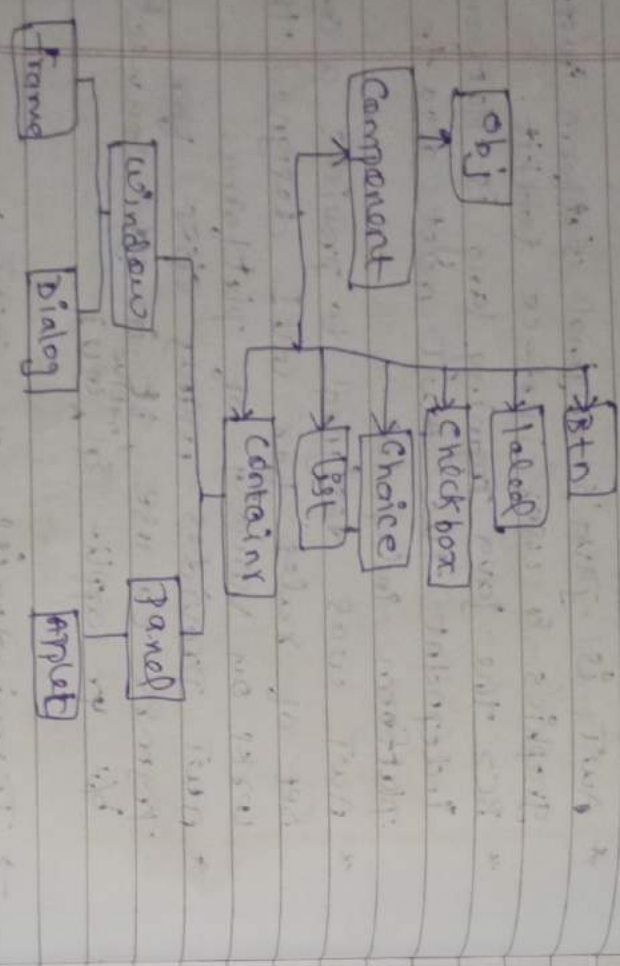 Obj
Component
Btn
label
Checkbox
Choice
List
Containr
Window
Panel
Frame
Dialog
Applet